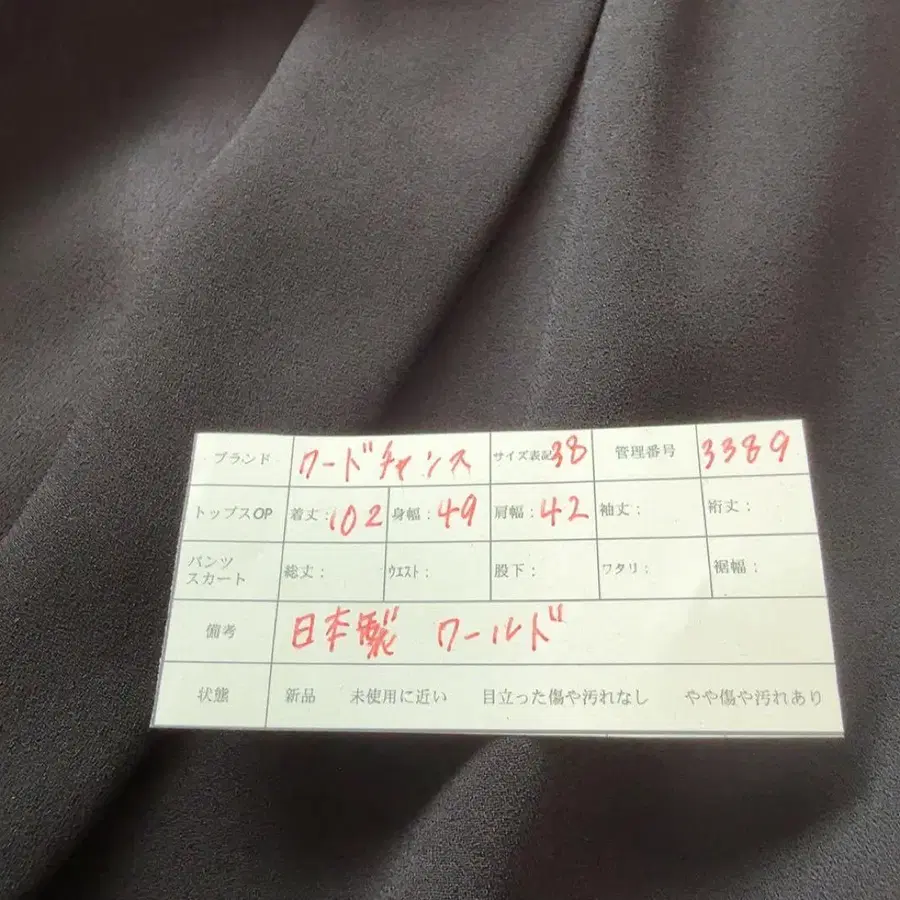 ブランド ワードチャンス サイズ表記 38 管理番号 3389
トップスOP 着丈:102 身幅:49 肩幅:42 袖丈: 裄丈:
パンツ スカート 総丈: ウエスト: 股下: ワタリ: 裾幅:
備考 日本製 ワールド
状態 新品 未使用に近い 目立った傷や汚れなし やや傷や汚れあり